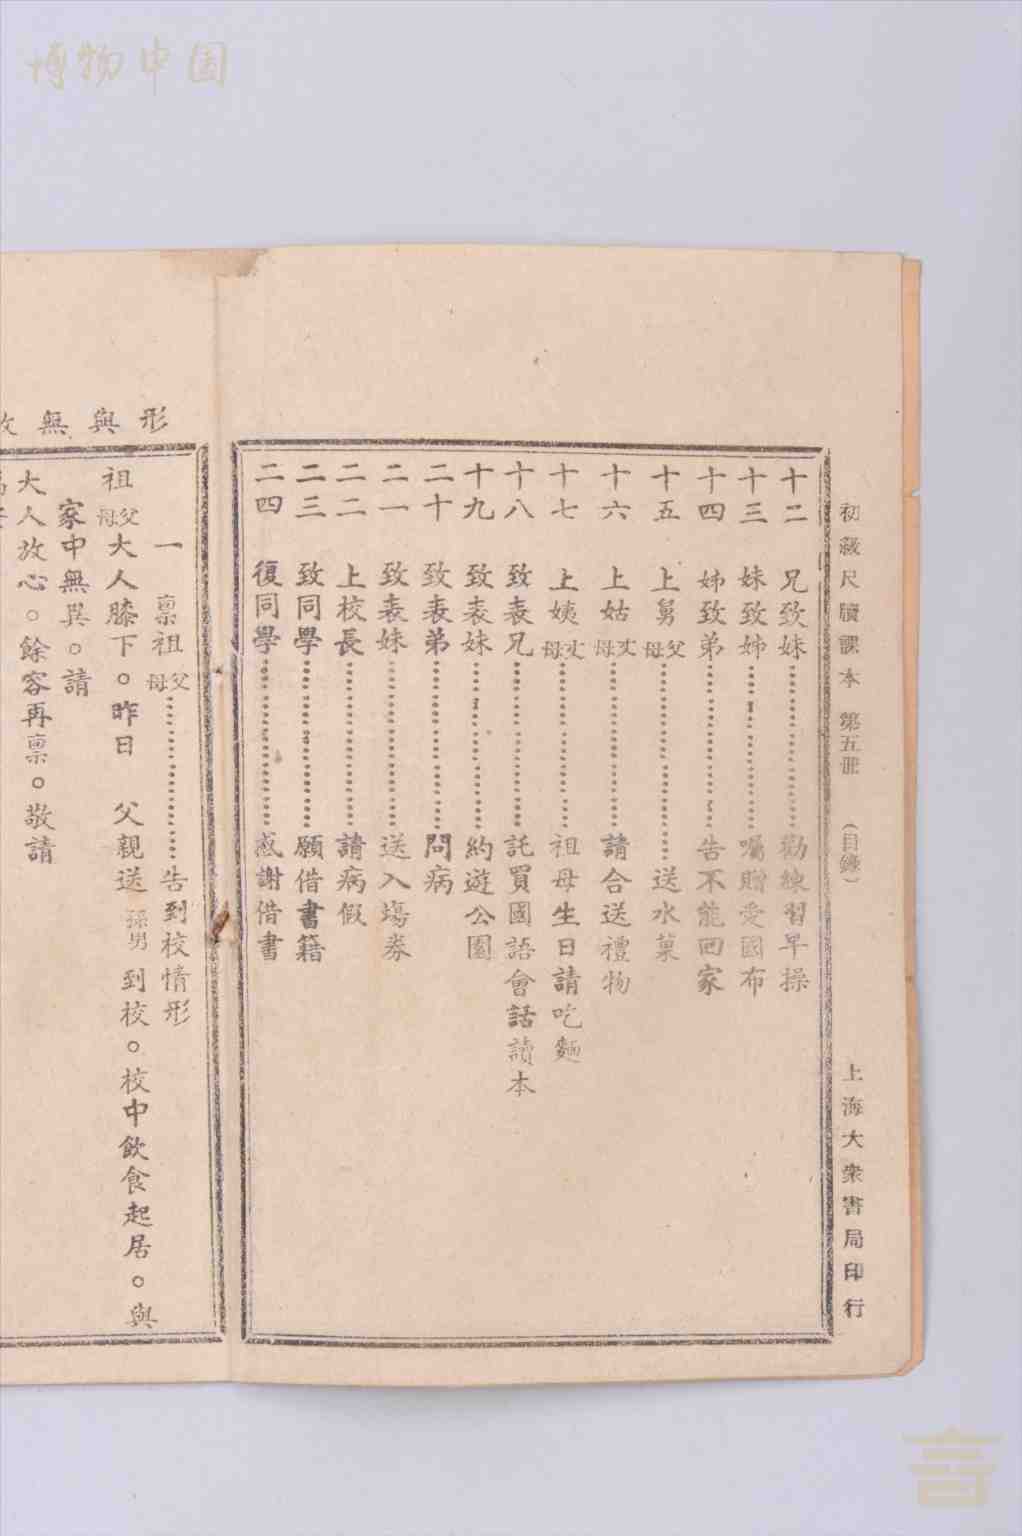 博物中国
初級尺牘課本 第五冊 （目錄） 上海大衆書局印行
十二 兄致妹……勸練習早操
十三 妹致姊……囑贈愛國布
十四 姊致弟……告不能回家
十五 上舅父母……送水菓
十六 上姑丈母……請合送禮物
十七 上姨丈母……祖母生日請吃麵
十八 致表兄……託買國語會話讀本
十九 致表妹……約遊公園
二十 致表弟……問病
二一 致表妹……送入場券
二二 上校長……請病假
二三 致同學……願借書籍
二四 復同學……感謝借書
形與無
一 稟祖父母……告到校情形
祖父母大人膝下。昨日 父親送 孫男 到校。校中飲食起居。與
家中無異。請
大人放心。餘容再稟。敬請